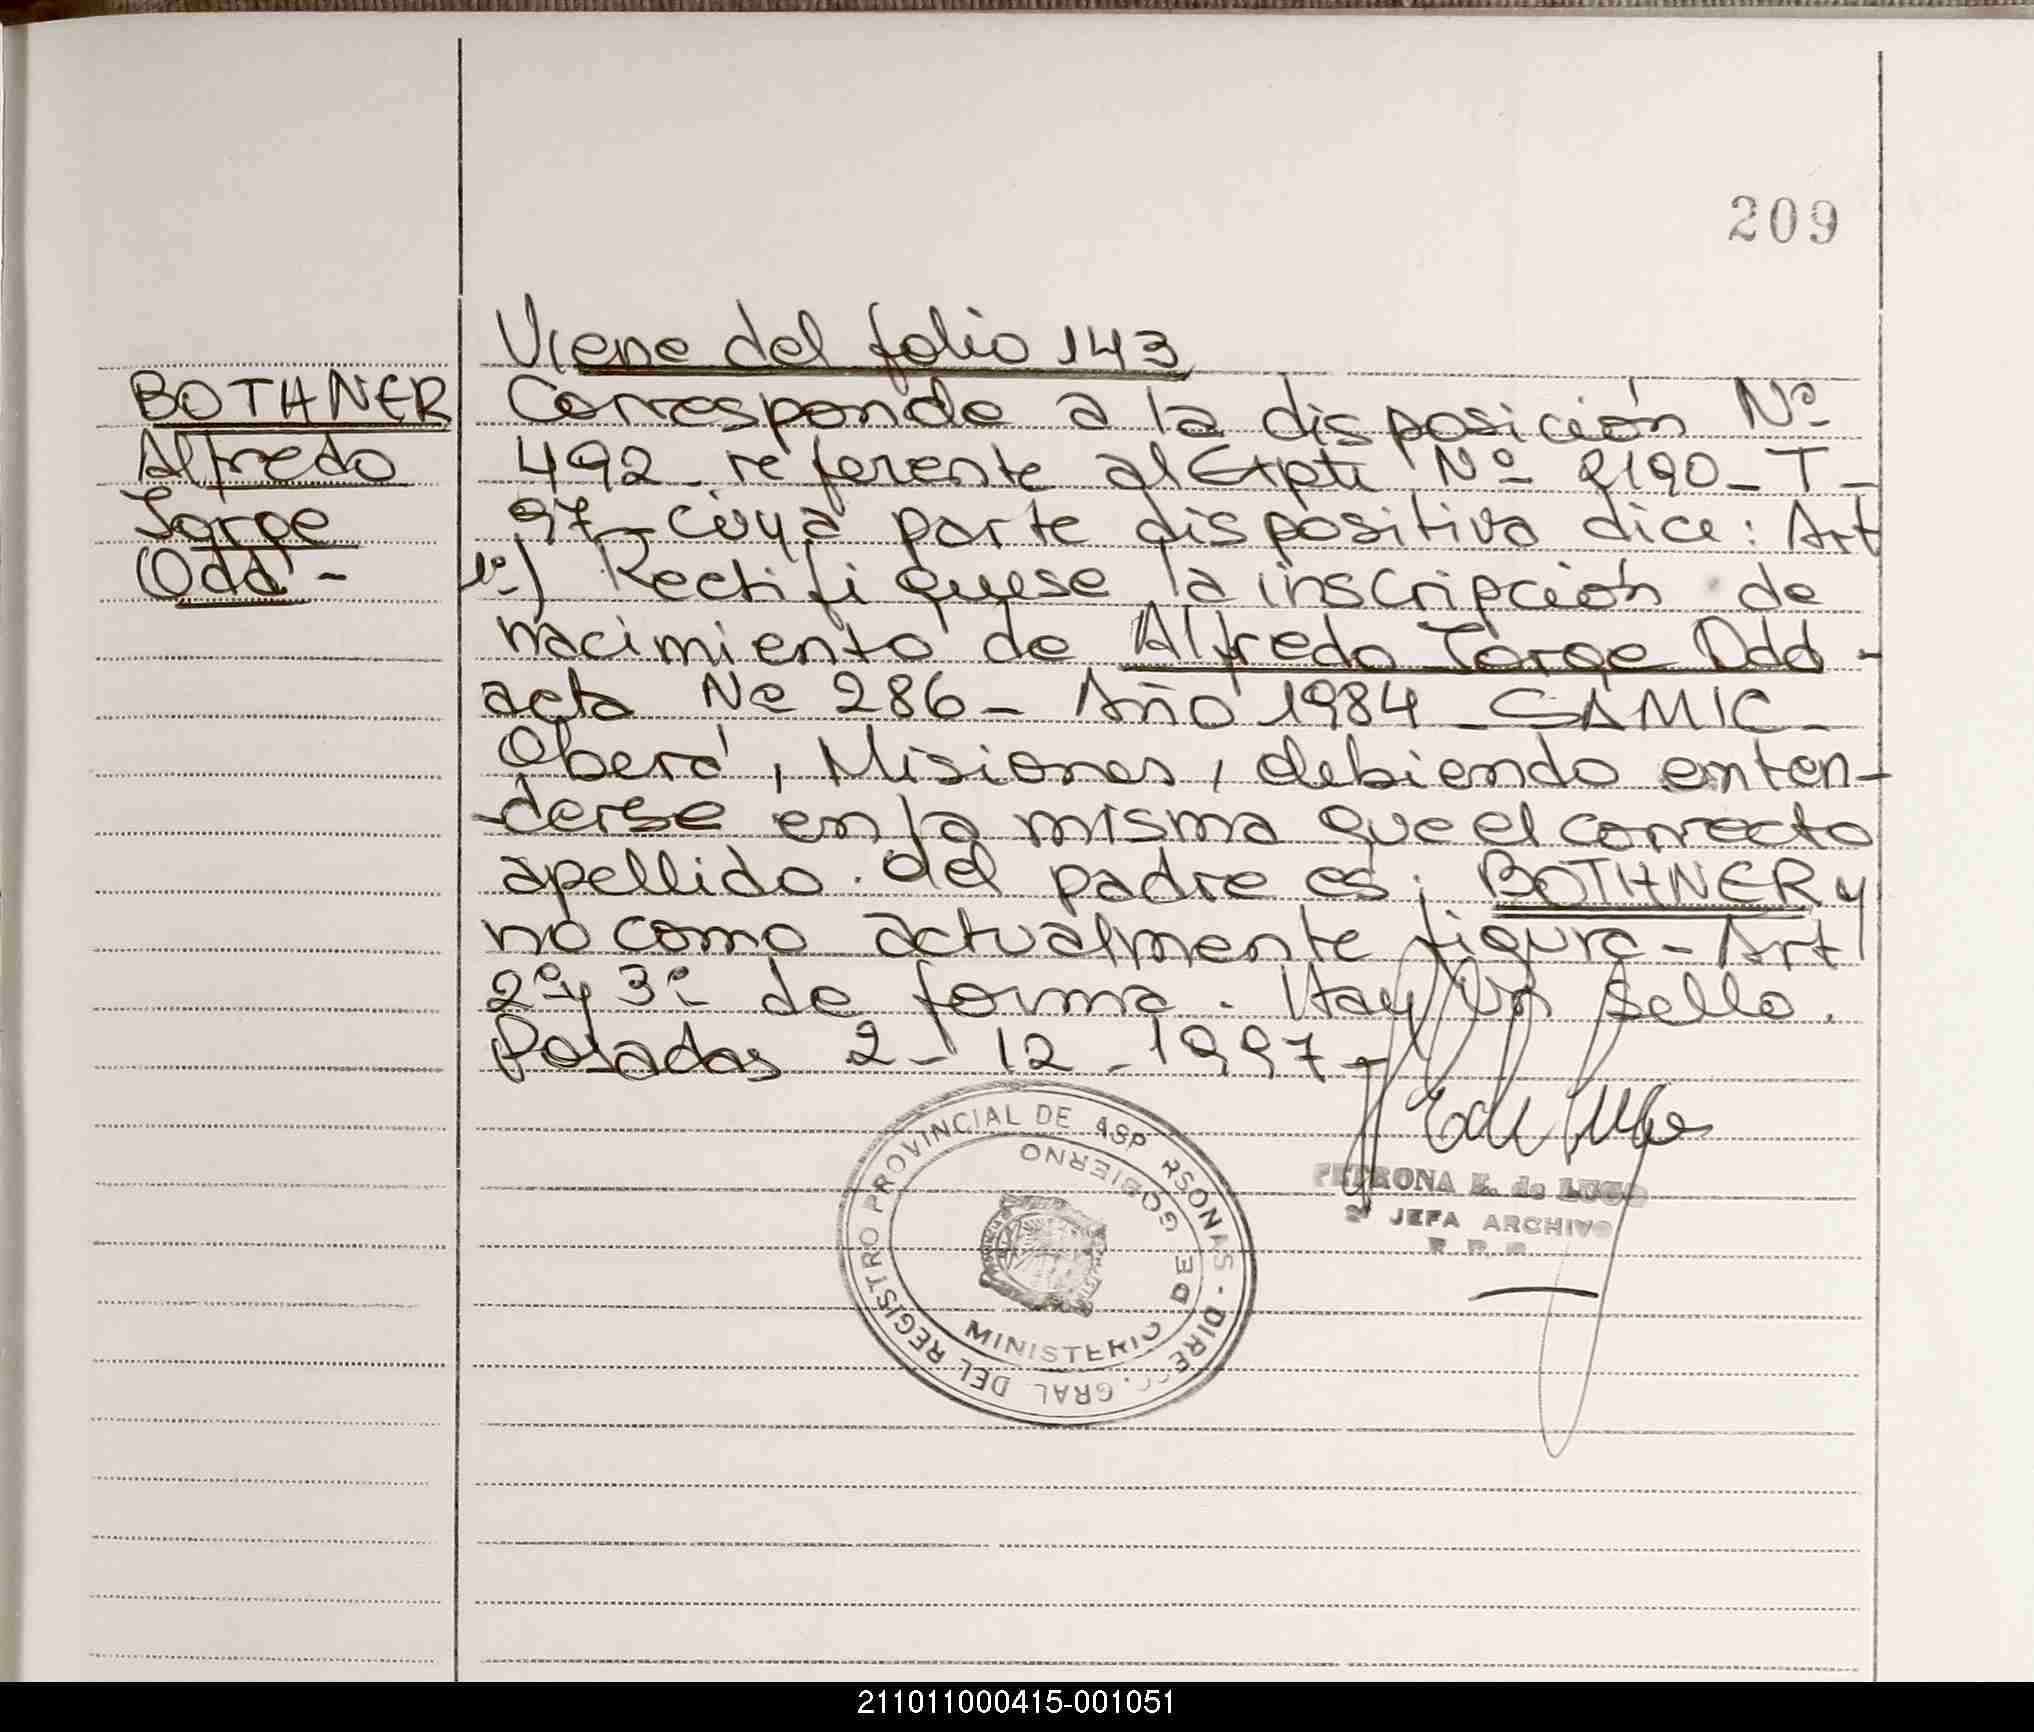 209
Viene del folio 143
BOTHNER
Alfredo
Jorge
Odd -
Corresponde a la disposición Nº
492 - referente al Expte Nº 2190 - T -
97 - cuya parte dispositiva dice: Art
1º-) Rectifiquese la inscripción de
nacimiento de Alfredo Jorge Odd -
acta Nº 286 - Año 1984 - SAMIC -
Oberá, Misiones, debiendo enten-
-derse en la misma que el correcto
apellido del padre es: BOTHNER y
no como actualmente figura - Art
2º y 3º - de forma. Hay un sello.
Posadas 2 - 12 - 1997 -
PETRONA E. de LUGO
2º JEFA ARCHIVO
DIRECC. GRAL DEL REGISTRO PROVINCIAL DE RSONAS -
MINISTERIO DE GOBIERNO
211011000415-001051